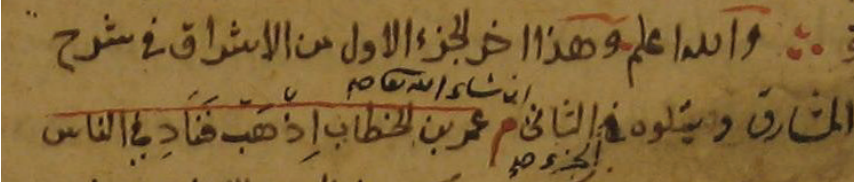 والله اعلم وهذا اخر الجزء الاول من الاشراق في شرح
ان شاء الله تعالى صح
المشارق ويتلوه في الثاني م عمر بن الخطاب اِذْهَبْ فَنَادِ في الناس
الجزء صح